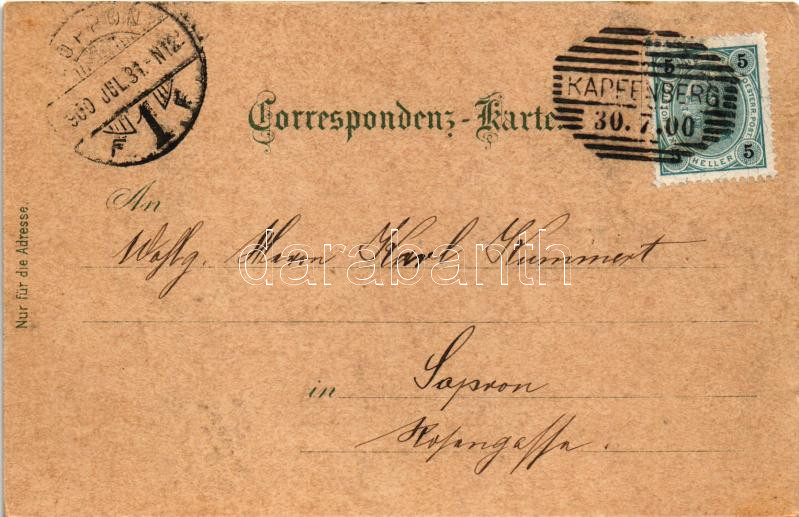 SOPRON
900 JUL. 31. N12
1
5 5
KAPFENBERG
30.7.00
OESTERR. POST
HELLER
5
Correspondenz-Karte.
An
Wohlg. Herrn Karl Kummert
darabanth
in Sopron
Rosengasse.
Nur für die Adresse.